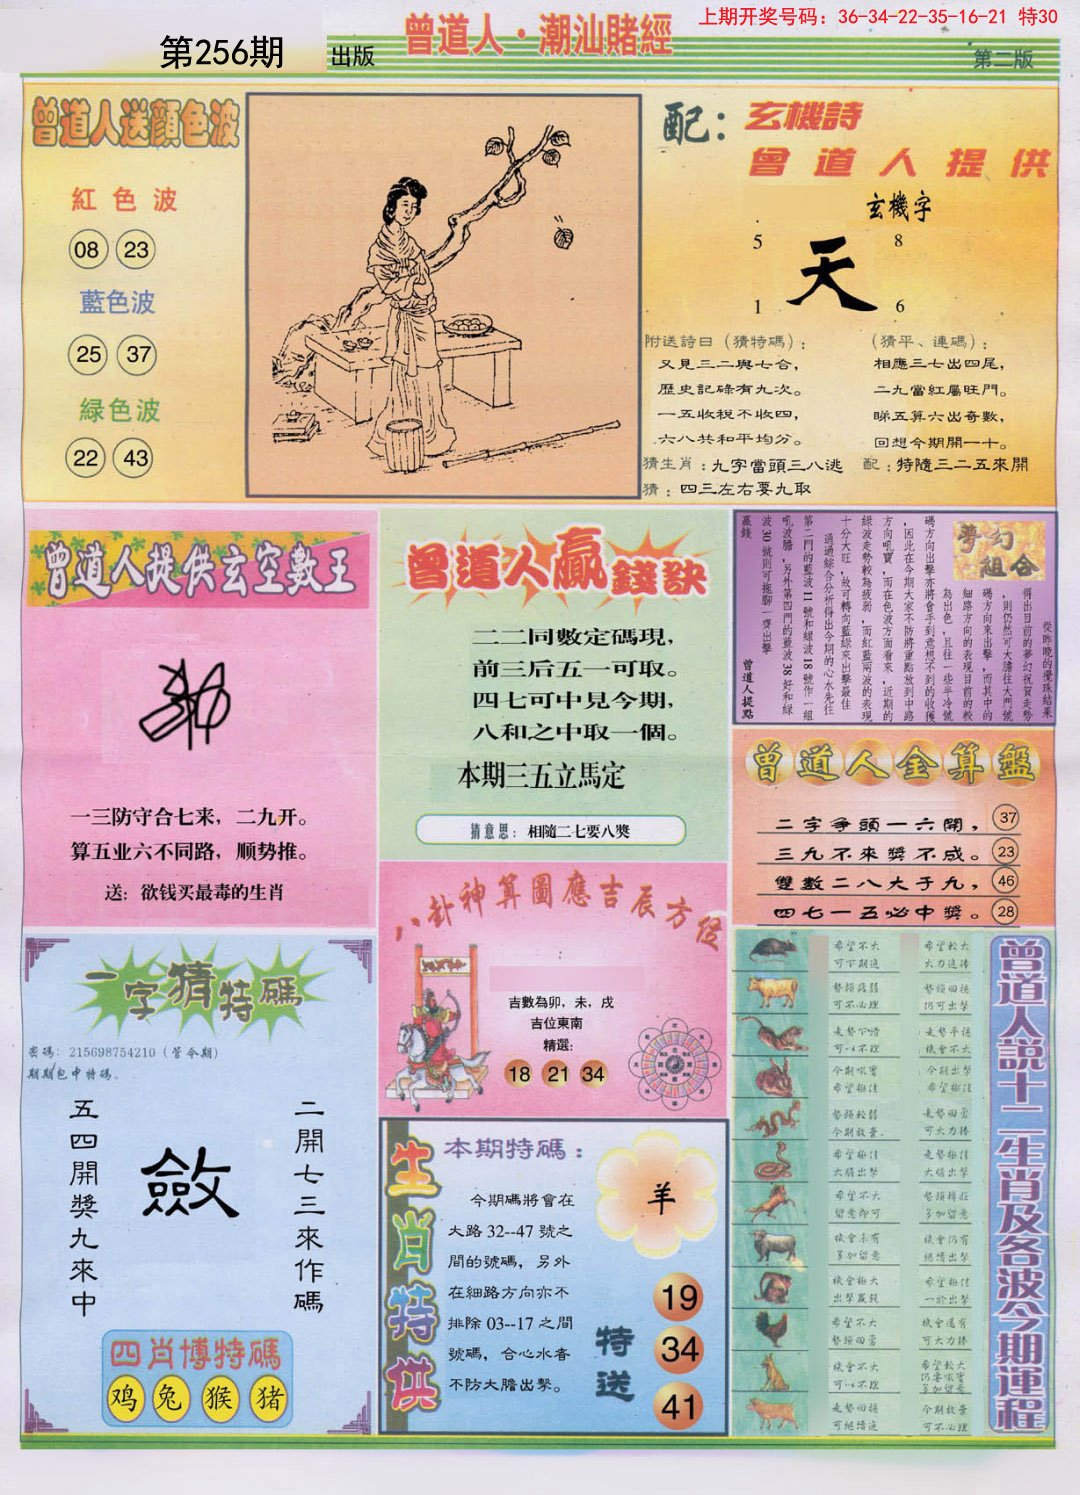 上期开奖号码：36-34-22-35-16-21 特30
第256期
出版
曾道人·潮汕賭經
第二版
曾道人送顏色波
紅色波
08 23
藍色波
25 37
緑色波
22 43
配：玄機詩
曾道人提供
玄機字
5 8
天
1 6
附送詩曰（猜特碼）；
又見三二與七合，
歷史記碌有九次。
一五收稅不收四，
六八共和平均分。
猜生肖：九字當頭三八逃
猜：四三左右要九取
（猜平、連碼）；
相應三七出四尾，
二九當紅屬旺門。
睇五算六出奇數，
回想今期開一十。
配：特隨三二五來開
曾道人提供玄空數王
一三防守合七来，二九开。
算五业六不同路，顺势推。
送：欲钱买最毒的生肖
曾道人贏錢訣
二二同數定碼現，
前三后五一可取。
四七可中見今期，
八和之中取一個。
本期三五立馬定
猜意思：相隨二七要八獎
夢幻組合
從昨晚的攪珠結果
得出目前的夢幻祝賀走勢
，則仍然可大膽往大門號
碼方向來出擊，而其中的
細路方向的表現目前的較
為出色，且往一些半冷號
碼方向出擊亦將會手到意想不到的收獲
，因此在今期大家不防將重點放到中路
方向吼實，而在色波方面看來，近期的
綠波走勢較為疲弱，而紅藍兩波的表現
十分大旺，故可轉向藍綠來出擊最佳
通過綜合分析得出今期的心水先往
第二門的藍波11號和綠波18號作一組
吼波膽，另外第四門的藍波38好和綠
波30號則可拖腳一齊出擊
贏錢
曾道人提點
曾道人全算盤
二字爭頭一六開，37
三九不來獎不成。23
雙數二八大于九，46
四七一五必中獎。28
八卦神算圖應吉辰方位
吉數為卯，未，戌
吉位東南
精選：
18 21 34
一字猜特碼
密碼：215698754210（管令期）
期期包中特碼、
二開七三來作碼
斂
五四開獎九來中
四肖博特碼
鸡 兔 猴 猪
生肖特供
本期特碼：
今期碼將會在
大路32--47號之
間的號碼，另外
在細路方向亦不
排除03--17之間
號碼，合心水者
不防大膽出擊。
羊
特送
19
34
41
曾道人說十二生肖及各波今期運程
希望不大
可下期追
希望較大
大力追捧
勢頭疲弱
可不必理
勢頭回穩
仍可出擊
走勢平穩
機會不大
今期吼實
希望極佳
今期出擊
希望極佳
勢頭較弱
今期放棄
走勢回勇
可大力捧
希望極佳
大膽出擊
走勢極佳
大膽出擊
希望不大
留意即可
勢頭轉旺
多加留意
機會未有
多加留意
機會仍有
繼續出擊
機會極大
出擊贏錢
希望極佳
一於出擊
希望不大
勢頭回勇
機會還有
可大力捧
機會不大
可一不理
希望較大
仍要吼實
多加留意
走勢回穩
可繼續追
今期放棄
可不必理